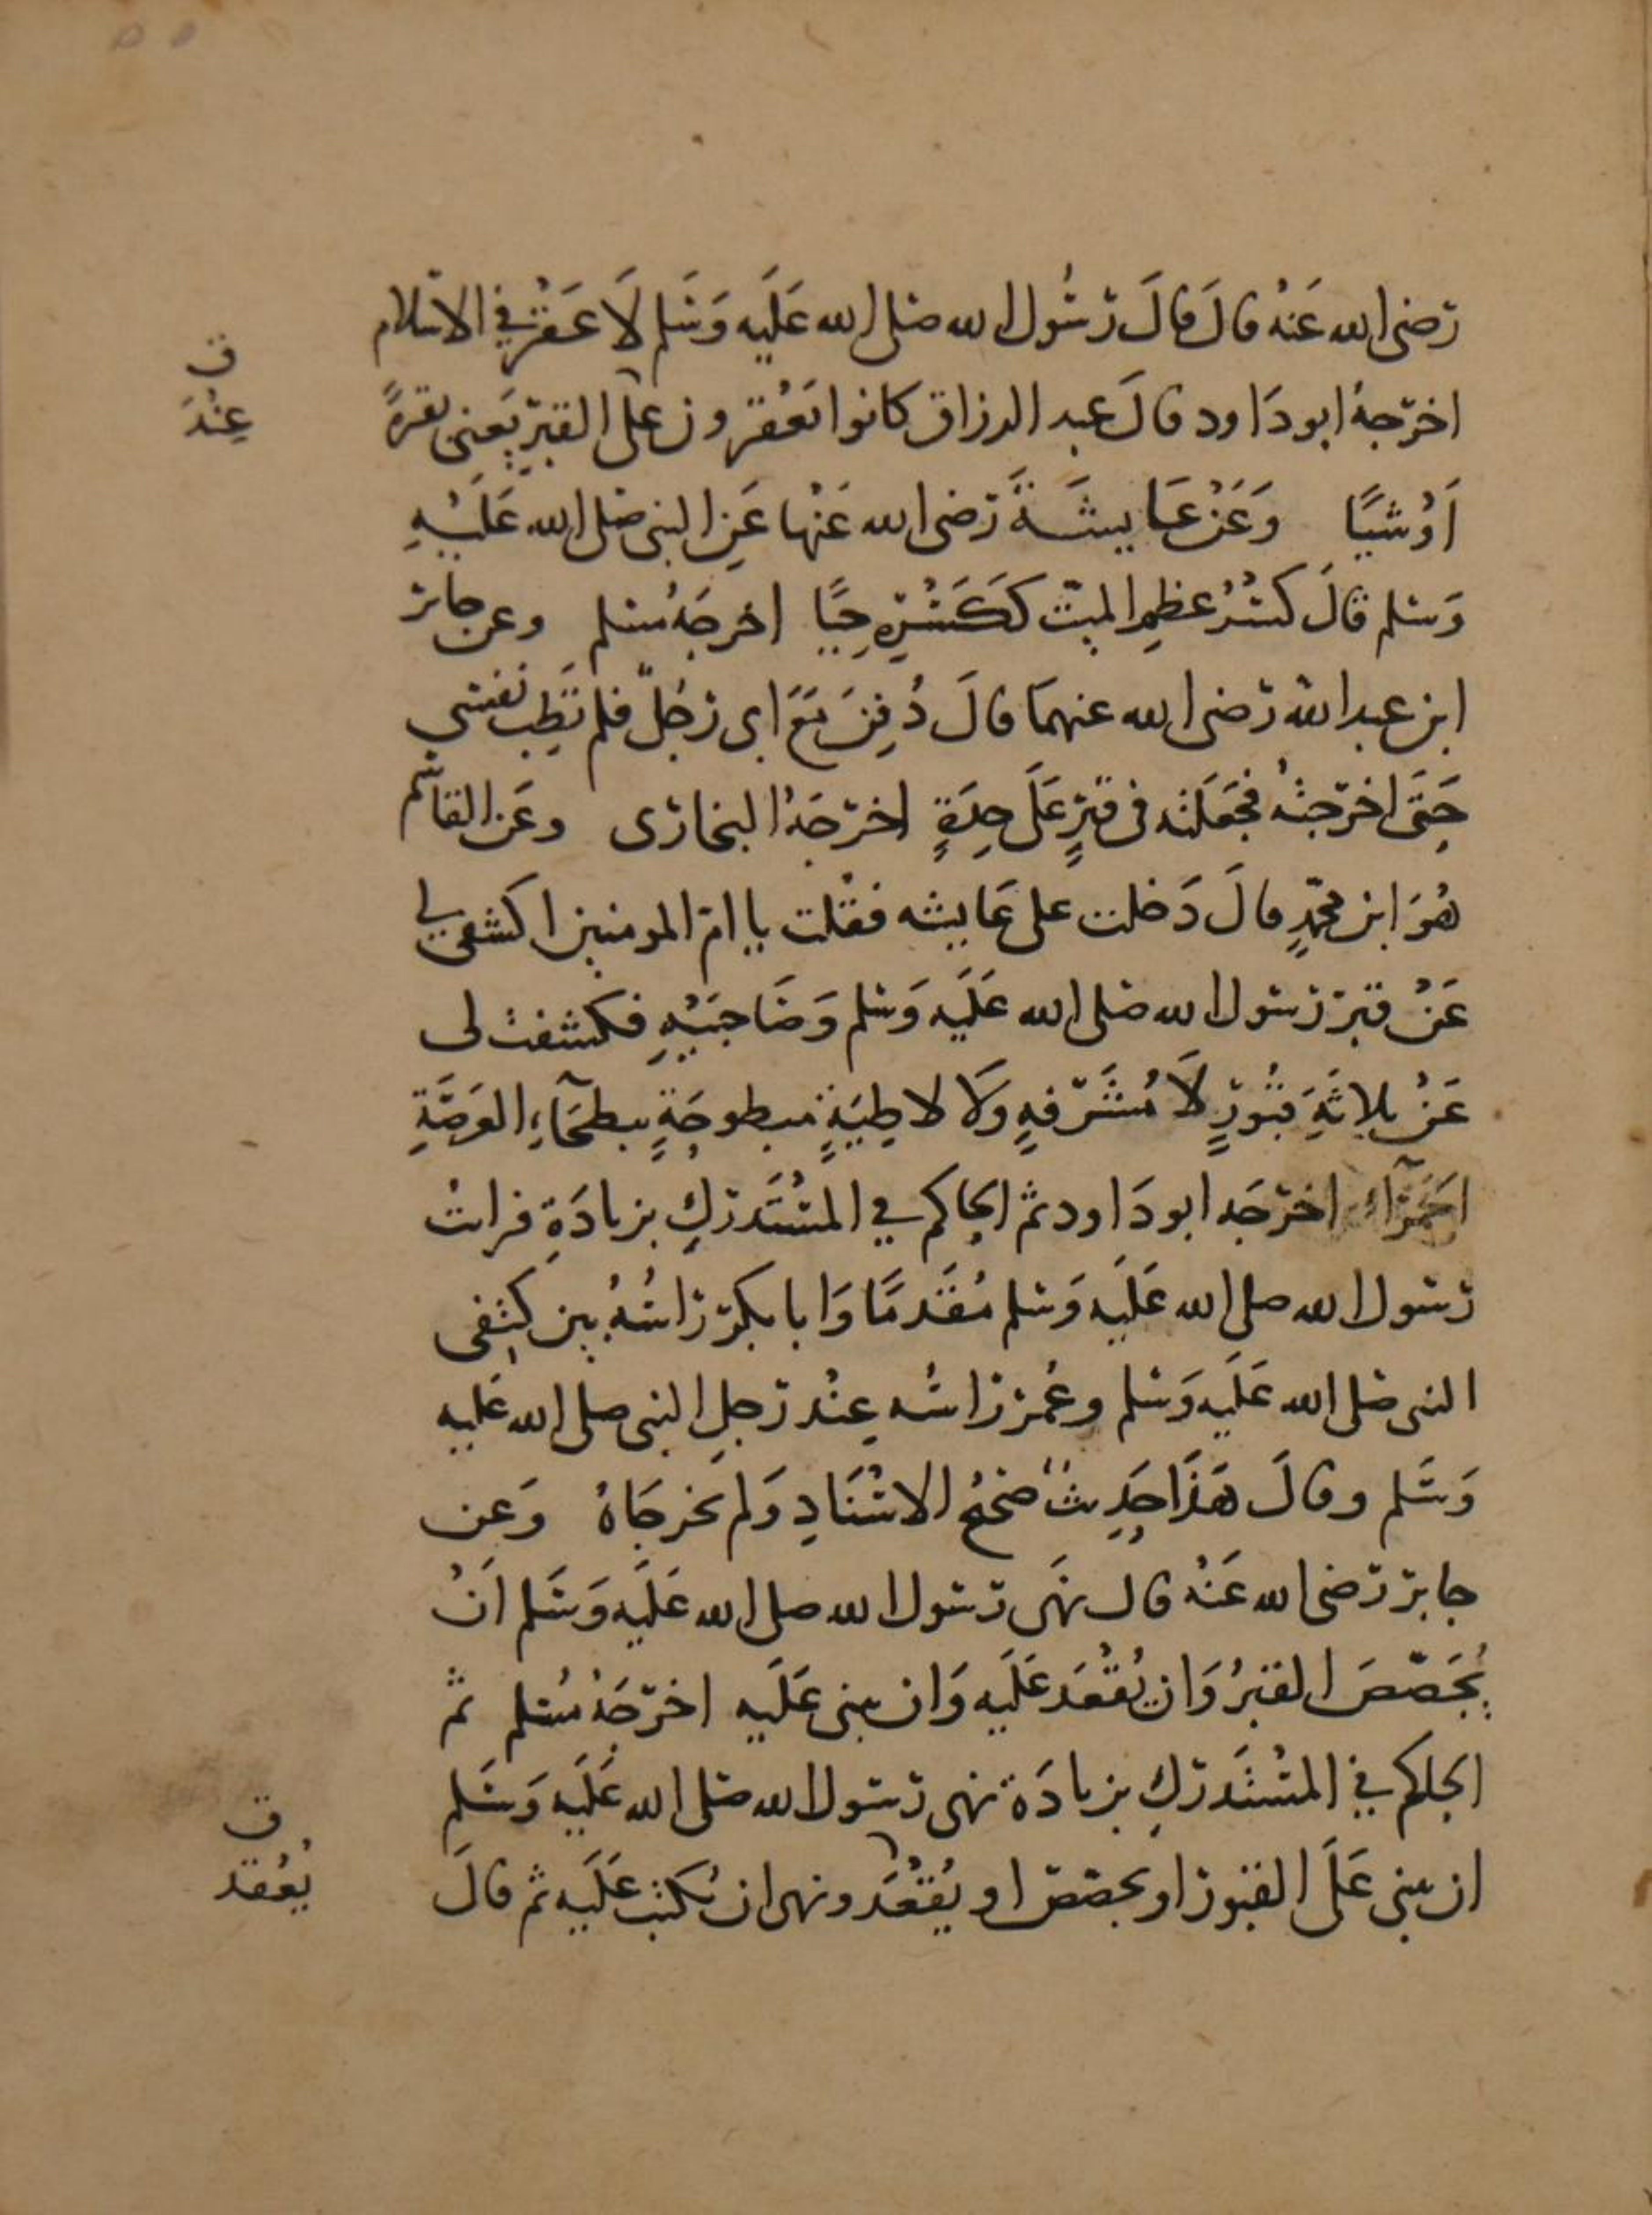 رضى الله عَنهُ قالَ قالَ رَسُول الله صلى الله عَلَيه وَسَلم لَا عَقْرَ فِي الاسلام
اخرَجهُ ابو دَاود قالَ عبد الرزاق كانوا يَعْقرون على القبر يَعنى بقرةً
اَوْ شيًا وَعَنْ عَايشَةَ رَضى الله عَنْها عَنِ النبى صلى الله عَلَيْهِ
وَسلم قالَ كسْرُ عظمِ الميّت كَكَسْرِهِ حيًا اخرجَهُ مُسلم وعن جابر
ابن عبد الله رَضى الله عنهمَا قالَ دُفِنَ مَعَ ابى رَجُلٌ فلم تَطِب نَفسى
حَتَى اخرَجتهُ فجَعَلته فى قبرٍ عَلَى حِدَةٍ اخرَجَهُ البخارى وعَن القاسم
هُوَ ابن محمّدٍ قالَ دَخلت على عَايشه فقلت يا امّ المومنين اكشفى لي
عَنْ قبر رَسول الله صلى الله عَلَيه وَسلم وَصَاحِبَيْهِ فكشفت لى
عَنْ ثلاثَةِ قبُورٍ لَا مُشَرّفهٍ وَلا لاطِيَةٍ مبطوحَةٍ ببطحَآءِ العَرصَةِ
الحَمرَآءِ اخرَجَه ابو دَاود ثم الحاكم في المسْتَدرَكِ بزيادَةِ فرايت
رَسول الله صلى الله عَلَيه وَسلم مُقَدمًا وَابا بكر رَاسُهُ بين كتِفى
النبى صَلى الله عَلَيه وَسلم وعُمر رَاسُه عِنْد رَجلِ النبى صلى الله عَليه
وَسَلم وقالَ هَذَا حَدِيثٌ صَحيحُ الاسْنَادِ وَلم يخرجَاهُ وَعن
جابر رَضى الله عَنْهُ قال نهَى رَسول الله صلى الله عَلَيه وَسَلم اَنْ
يُجَصّصَ القبرُ وَان يُقْعَد عَلَيه وَان يبنى عَلَيه اخرَجَهُ مُسلم ثم
الحاكم في المسْتَدرَكِ بزيادَة نهى رَسول الله صَلى الله عَلَيه وَسَلم
ان يبنى عَلَى القبور او يجصّصَ او يُقْعَد ونهى ان يُكتب عَلَيه ثم قالَ
ق
عِنْدَ
ق
يُعْقد